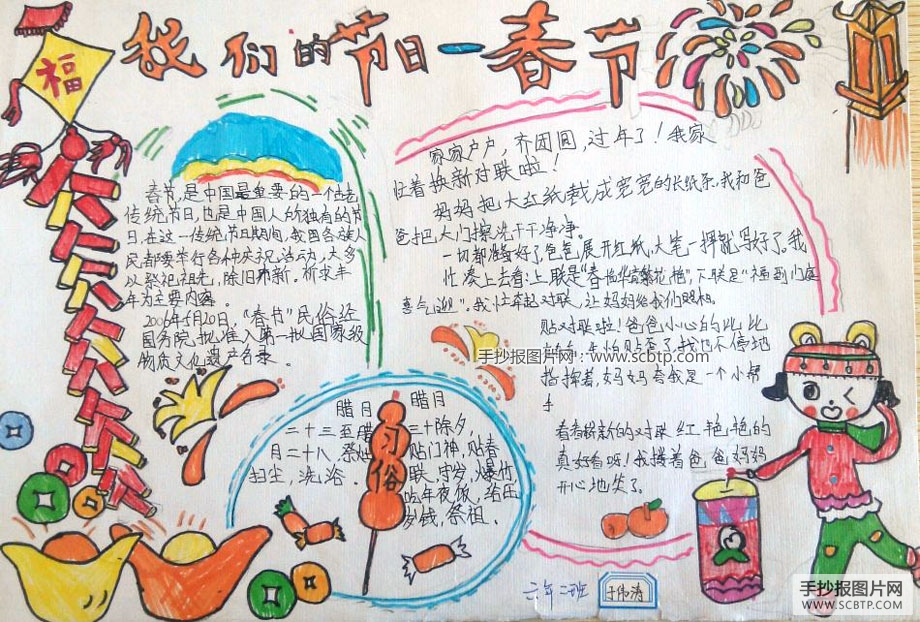 我们的节日—春节
福
春节,是中国最重要的一个
传统节日,也是中国人的独有的节
日,在这一传统节日期间,我国各族人
民都要举行各种庆祝活动,大多
以祭祀祖先,除旧布新。祈求丰
年为主要内容。
2006年5月20日,“春节”民俗经
国务院批准入第一批国家级
物质文化遗产名录。
家家户户,齐团圆,过年了!我家
忙着换新对联啦!
妈妈把大红纸裁成宽宽的长纸条。我和爸
爸把大门擦洗干干净净。
一切都准备好了,爸爸展开红纸,大笔一挥就写好了。我
忙凑上去看:上联是“春
喜气迎”。我忙举起对联,让妈妈给我们照相
贴对联啦!爸爸小心的比比
贴歪了,我也不停地
指挥着,妈妈夸我是一个小帮
手
看着崭新的对联红艳艳的
真好看呀!我搂着爸爸妈妈
开心地笑了。
手抄报图片网:www.scbtp.com
习俗
腊月
二十三至腊
月二十八,祭灶
扫尘,洗浴。
腊月
三十除夕,
贴门神,贴春
联,守岁,爆竹
吃年夜饭,给压
岁钱,祭祖。
六年二班
于伟涛
手抄报图片网
WWW.SCBTP.COM